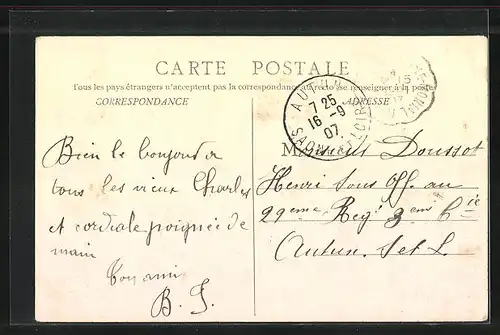 CARTE POSTALE
Tous les pays étrangers n'acceptent pas la correspondance au recto (se renseigner à la poste)
CORRESPONDANCE
ADRESSE
AUTUN
7 25
16 - 9
07
SAONE-ET-LOIRE
Bien le bonjour à
tous les vieux Charles
et cordiale poignée de
main
Ton ami
B.
Monsieur Doussot
Henri Sous Off. au
29eme Reg^t 3em C^ie
Autun. S et L.